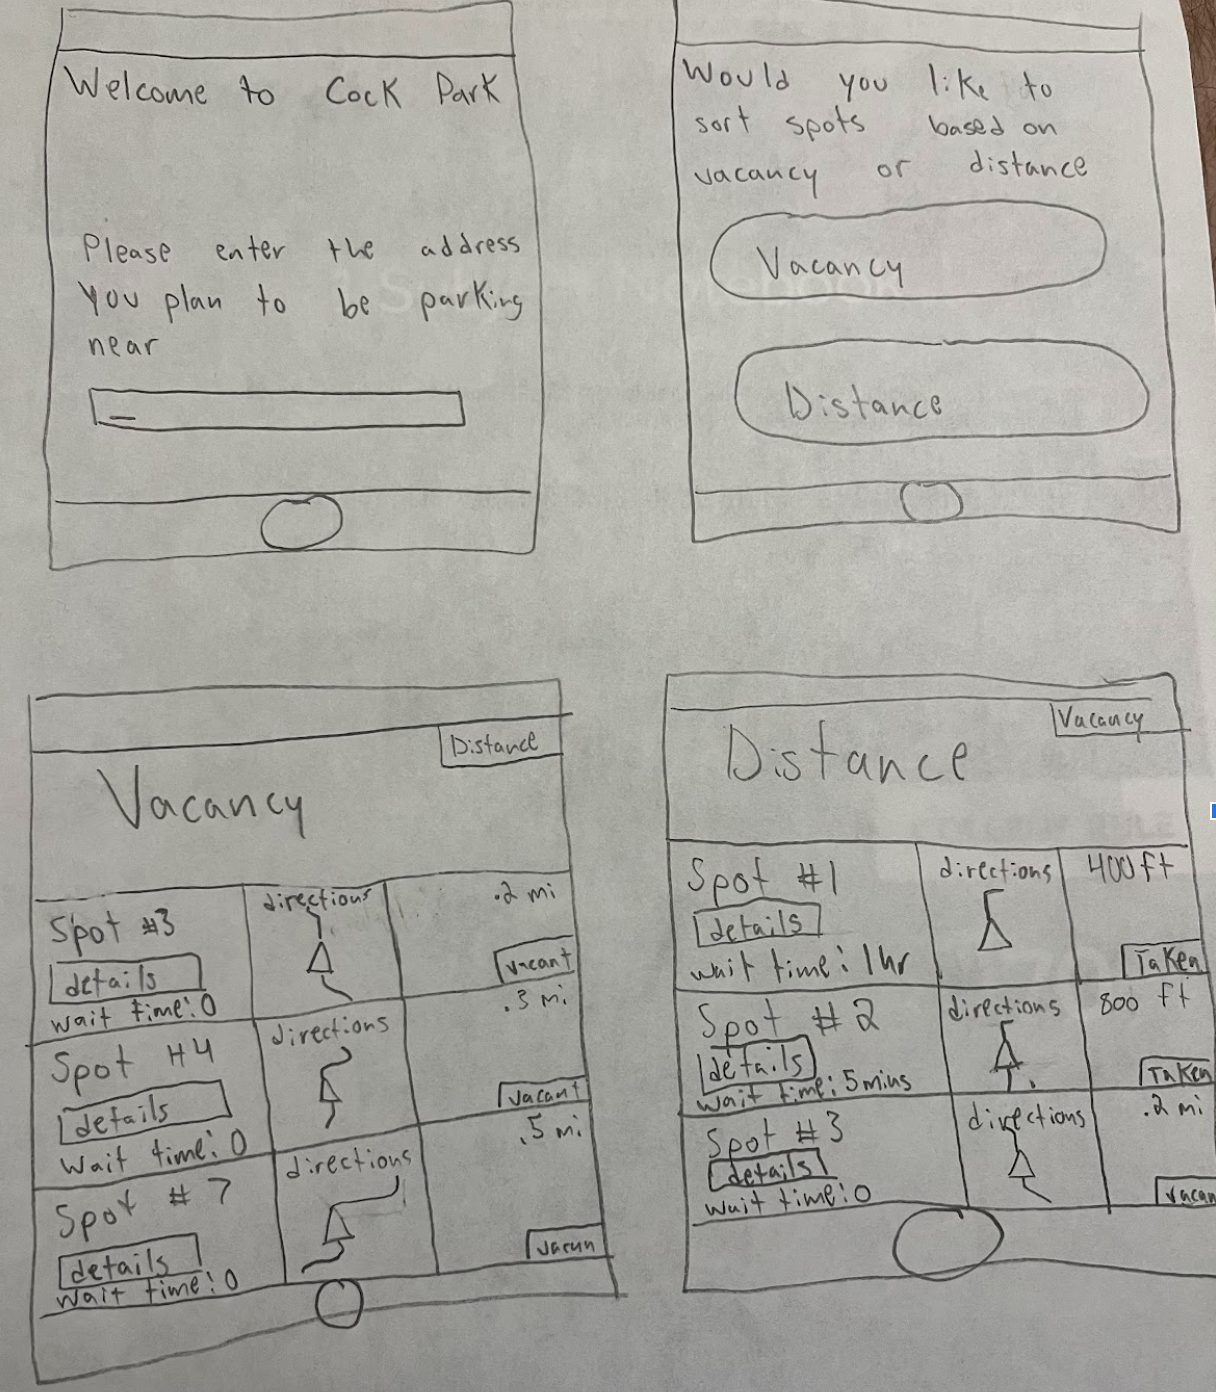 Welcome to Cock Park
Please enter the address
you plan to be parking
near
Would you like to
sort spots based on
vacancy or distance
Vacancy
Distance
Distance
Vacancy
Spot #3
details
wait time: 0
directions
.2 mi
vacant
Spot #4
details
Wait time: 0
directions
.3 mi
vacant
Spot #7
details
wait time: 0
directions
.5 mi
vacun
Vacancy
Distance
Spot #1
details
wait time: 1hr
directions
400 ft
Taken
Spot #2
details
wait time: 5 mins
directions
800 ft
Taken
Spot #3
details
wait time: 0
directions
.2 mi
vacan